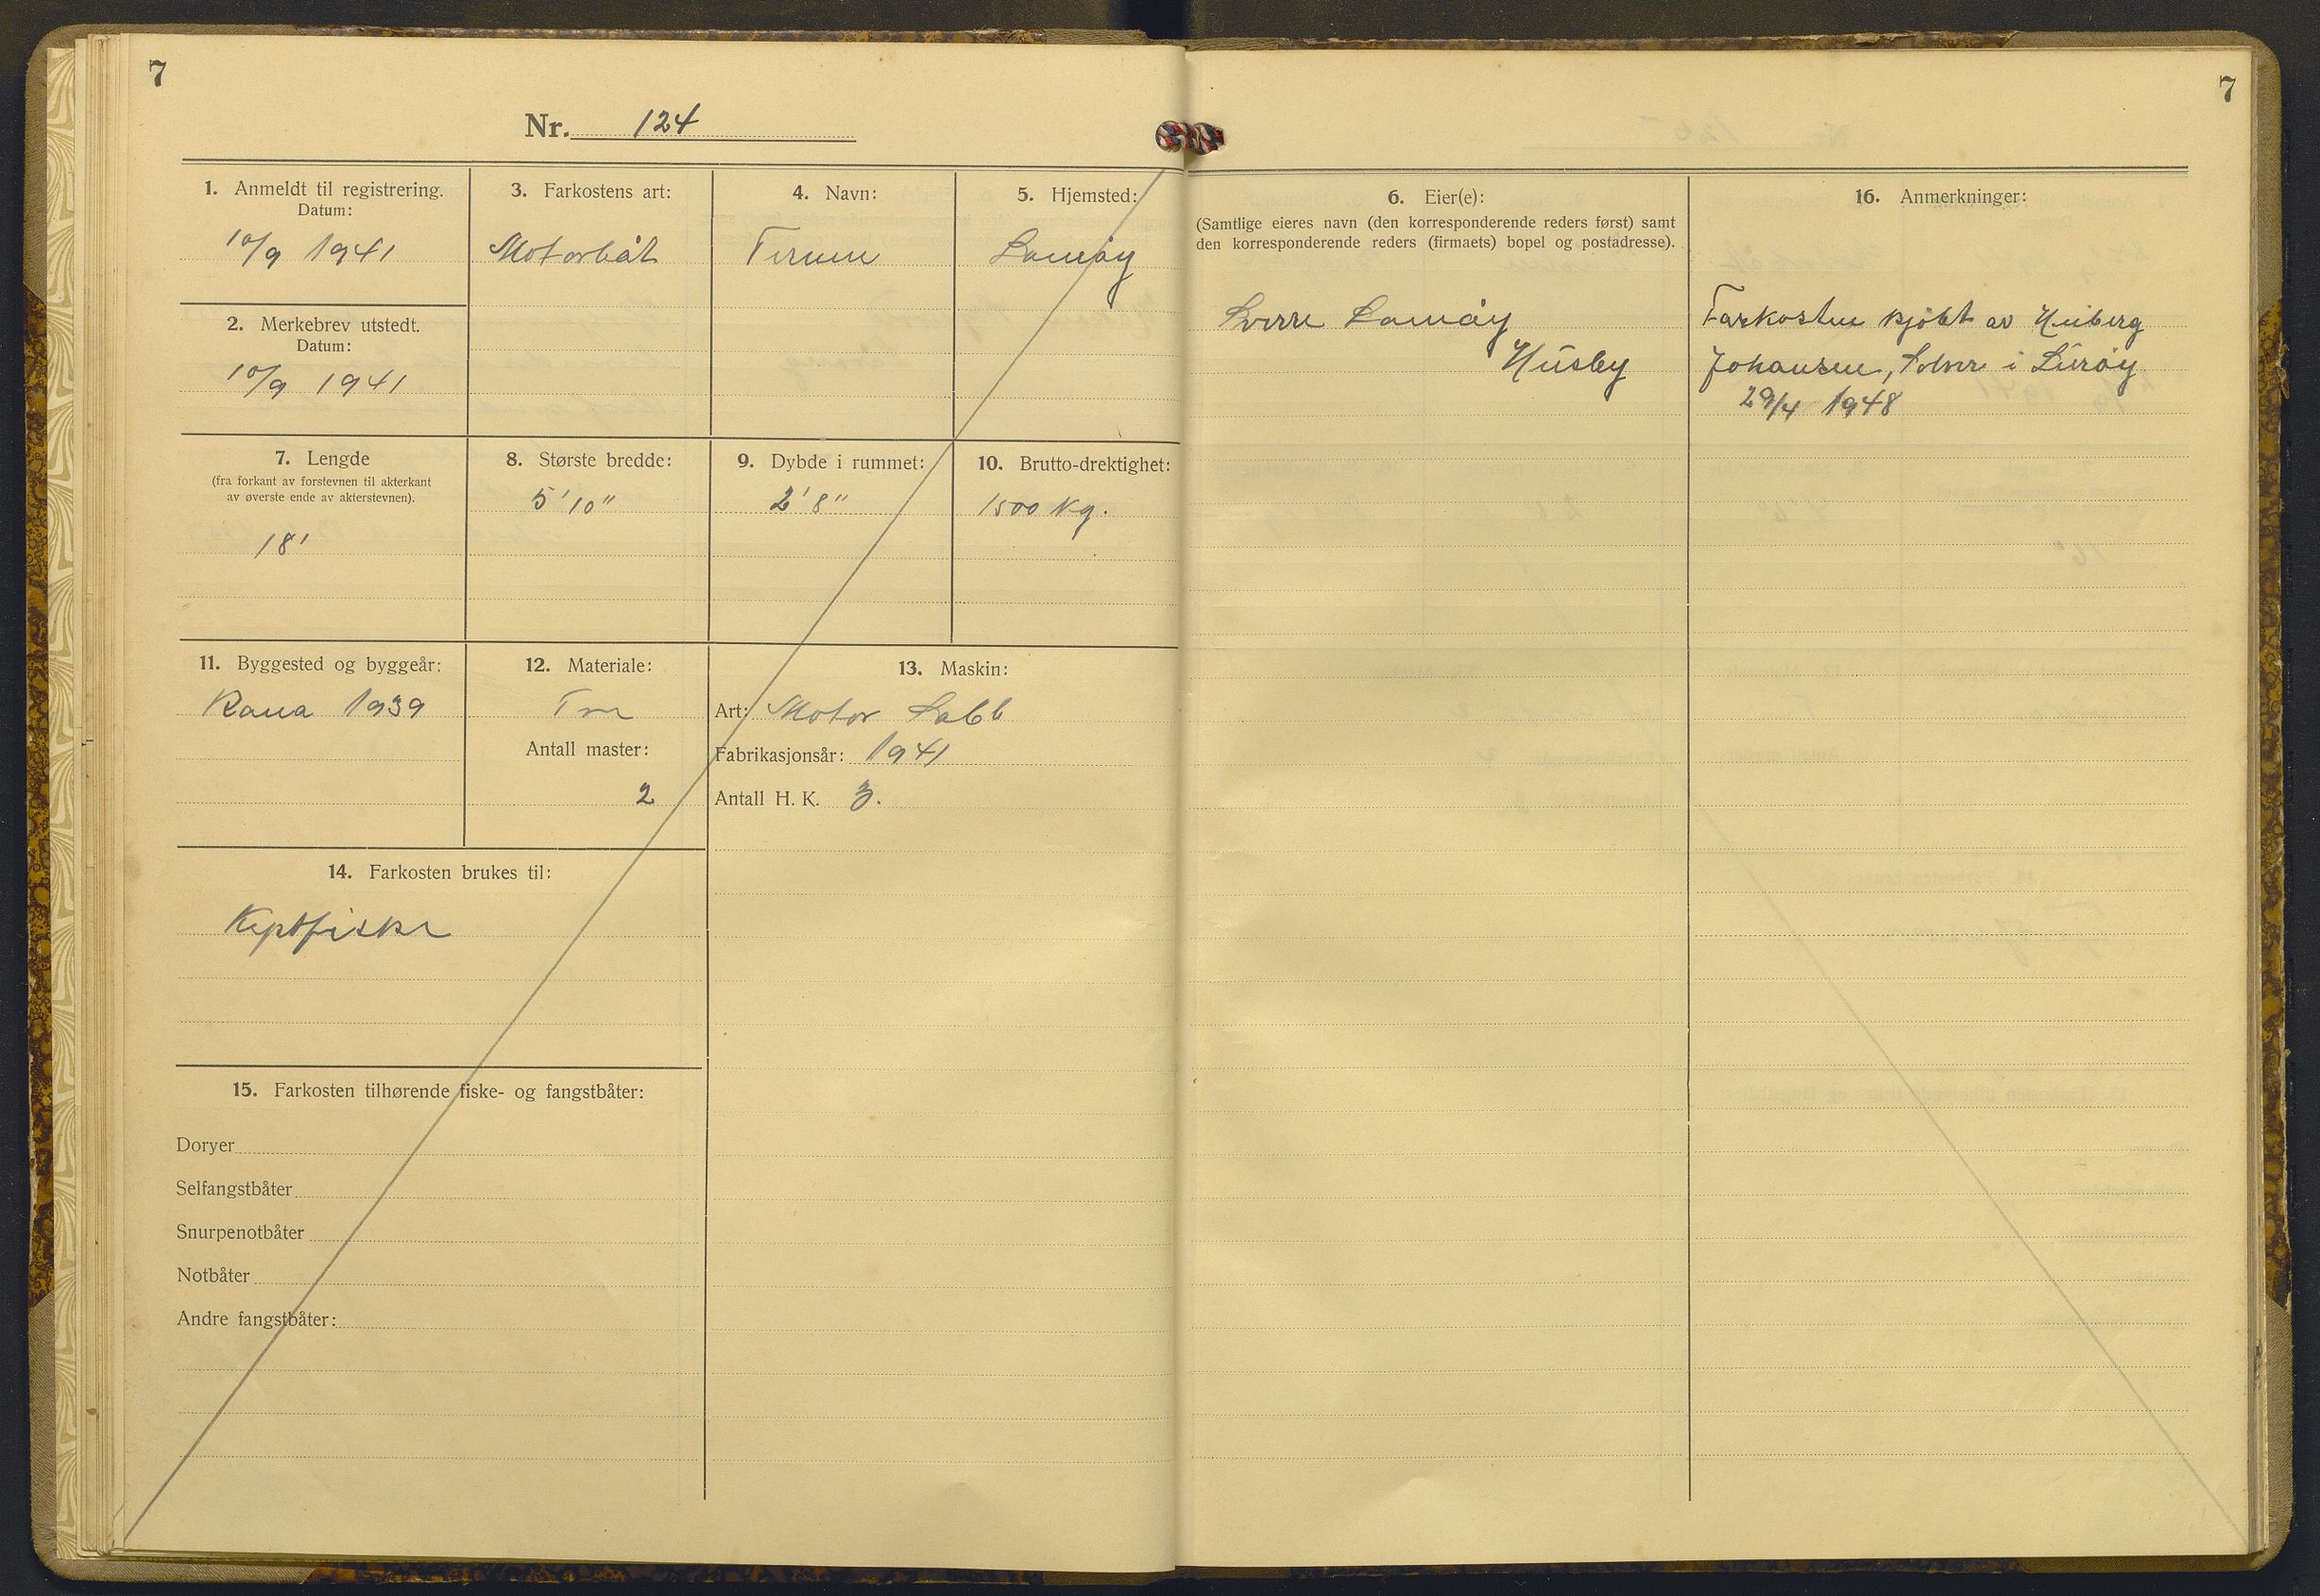 7
Nr. 124
1. Anmeldt til registrering.
Datum:
10/9 1941
2. Merkebrev utstedt.
Datum:
10/9 1941
3. Farkostens art:
Motorbåt
4. Navn:
5. Hjemsted:
Lamøy
7. Lengde
(fra forkant av forstevnen til akterkant
av øverste ende av akterstevnen).
18'
8. Største bredde:
5'10"
9. Dybde i rummet:
2'8"
10. Brutto-drektighet:
1500 kg.
11. Byggested og byggeår:
Rana 1939
12. Materiale:
Tre
Antall master:
2
13. Maskin:
Art: Motor Sabb
Fabrikasjonsår: 1941
Antall H. K. 3.
14. Farkosten brukes til:
15. Farkosten tilhørende fiske- og fangstbåter:
Doryer
Selfangstbåter
Snurpenotbåter
Notbåter
Andre fangstbåter:
7
6. Eier(e):
(Samtlige eieres navn (den korresponderende reders først) samt
den korresponderende reders (firmaets) bopel og postadresse).
Sverre Lamøy
Husby
16. Anmerkninger:
Farkosten kjöbt av Heiberg
Johansen, Solvær i Lurøy
29/4 1948